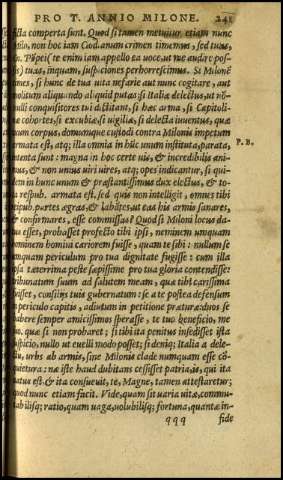 PRO T. ANNIO MILONE. 241
ficta comperta sunt. Quod si tamen metuitur etiam nunc
Milo, non hoc iam Clodianum crimen timemus, sed tuas,
Cn. Pompei (te enim iam appello ea voce, ut me audire pos-
sis) tuas, inquam, suspiciones perhorrescimus. Si Milonē
times, si hunc de tua vita nefarie aut nunc cogitare, aut
molitum aliquando aliquid putas: si Italiæ delectus, ut
nulli conquisitores tui dictitant, si hæc arma, si Capitoli-
næ cohortes, si excubiæ, si vigiliæ, si delecta iuventus, quæ
tuum corpus, domumque custodit contra Milonis impetum
armata est, atq; illa omnia in hūc unum instituta, parata,
intenta sunt: magna in hoc certe vis, & incredibilis ani-
mus, & non unius viri vires, atq; opes indicantur, si qui-
dem in hunc unum & præstantissimus dux electus, & to-
ta resp. armata est. sed quis non intelligit, omnes tibi
reipub. partes ægras, & labātes, ut eas his armis sanares,
& confirmares, esse commissas? Quod si Miloni locus da-
tus esset, probasset profecto tibi ipsi, neminem unquam
hominem homini cariorem fuisse, quam te sibi: nullum se
unquam periculum pro tua dignitate fugisse: cum illa
ipsa tæterrima peste sæpissime pro tua gloria contendisse:
tribunatum suum ad salutem meam, quæ tibi carissima
fuisset, consiliis tuis gubernatum: se a te postea defensum
in periculo capitis, adiutum in petitione præturæ: duos se
habere semper amicissimos sperasse, te tuo beneficio, me
suo. quæ si non probaret; si tibi ita penitus insedisset ista
suspicio, nullo ut evelli modo posset; si deniq; Italia a dele-
ctu, urbs ab armis, sine Milonis clade numquam esset cō-
quietura: næ iste haud dubitans cessisset patria, is, qui ita
natus est & ita consuevit, te, Magne, tamen attestaretur;
quod nunc etiam facit. Vide, quam sit varia vitæ commu-
tabilisq; ratio, quam vaga, volubilisq; fortuna, quantæ in-
P. B.
qqq fide